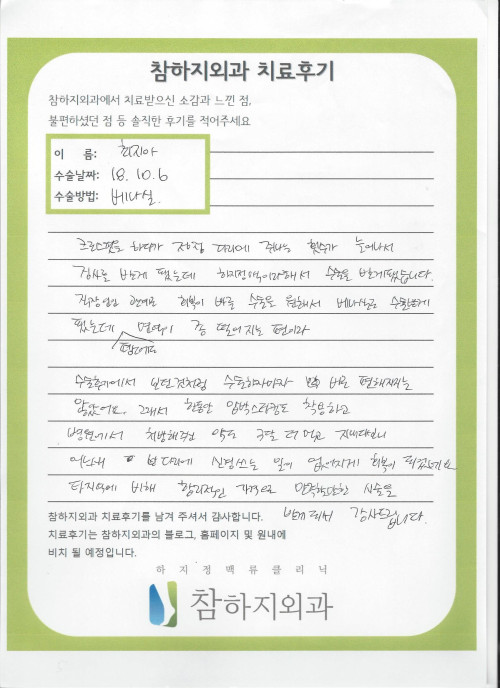 참하지외과 치료후기
참하지외과에서 치료받으신 소감과 느낀 점,
불편하셨던 점 등 솔직한 후기를 적어주세요
이 름: 최지아
수술날짜: 18. 10. 6
수술방법: 베나실.
크로스핏을 하다가 점점 다리에 쥐나는 횟수가 늘어나서
검사를 받게 됐는데 하지정맥이라해서 수술을 받게됐습니다.
직장인인 관계로 회복이 빠른 수술을 원해서 베나실로 수술받게
됐는데 면역이 좀 떨어지는 편이라
수술후기에서 보던것처럼 수술하자마자 바로 편해지지는
않았어요. 그래서 한동안 압박스타킹도 착용하고
병원에서 처방해주신 약도 먹고 지내다보니
어느새 다리에 신경쓰는 일이 없어지게 회복이 되었네요
타지역에 비해 합리적인 가격으로 만족할만한 시술을
받게돼서 감사드립니다.
참하지외과 치료후기를 남겨 주셔서 감사합니다.
치료후기는 참하지외과의 블로그, 홈페이지 및 원내에
비치 될 예정입니다.
하지정맥류클리닉
참하지외과